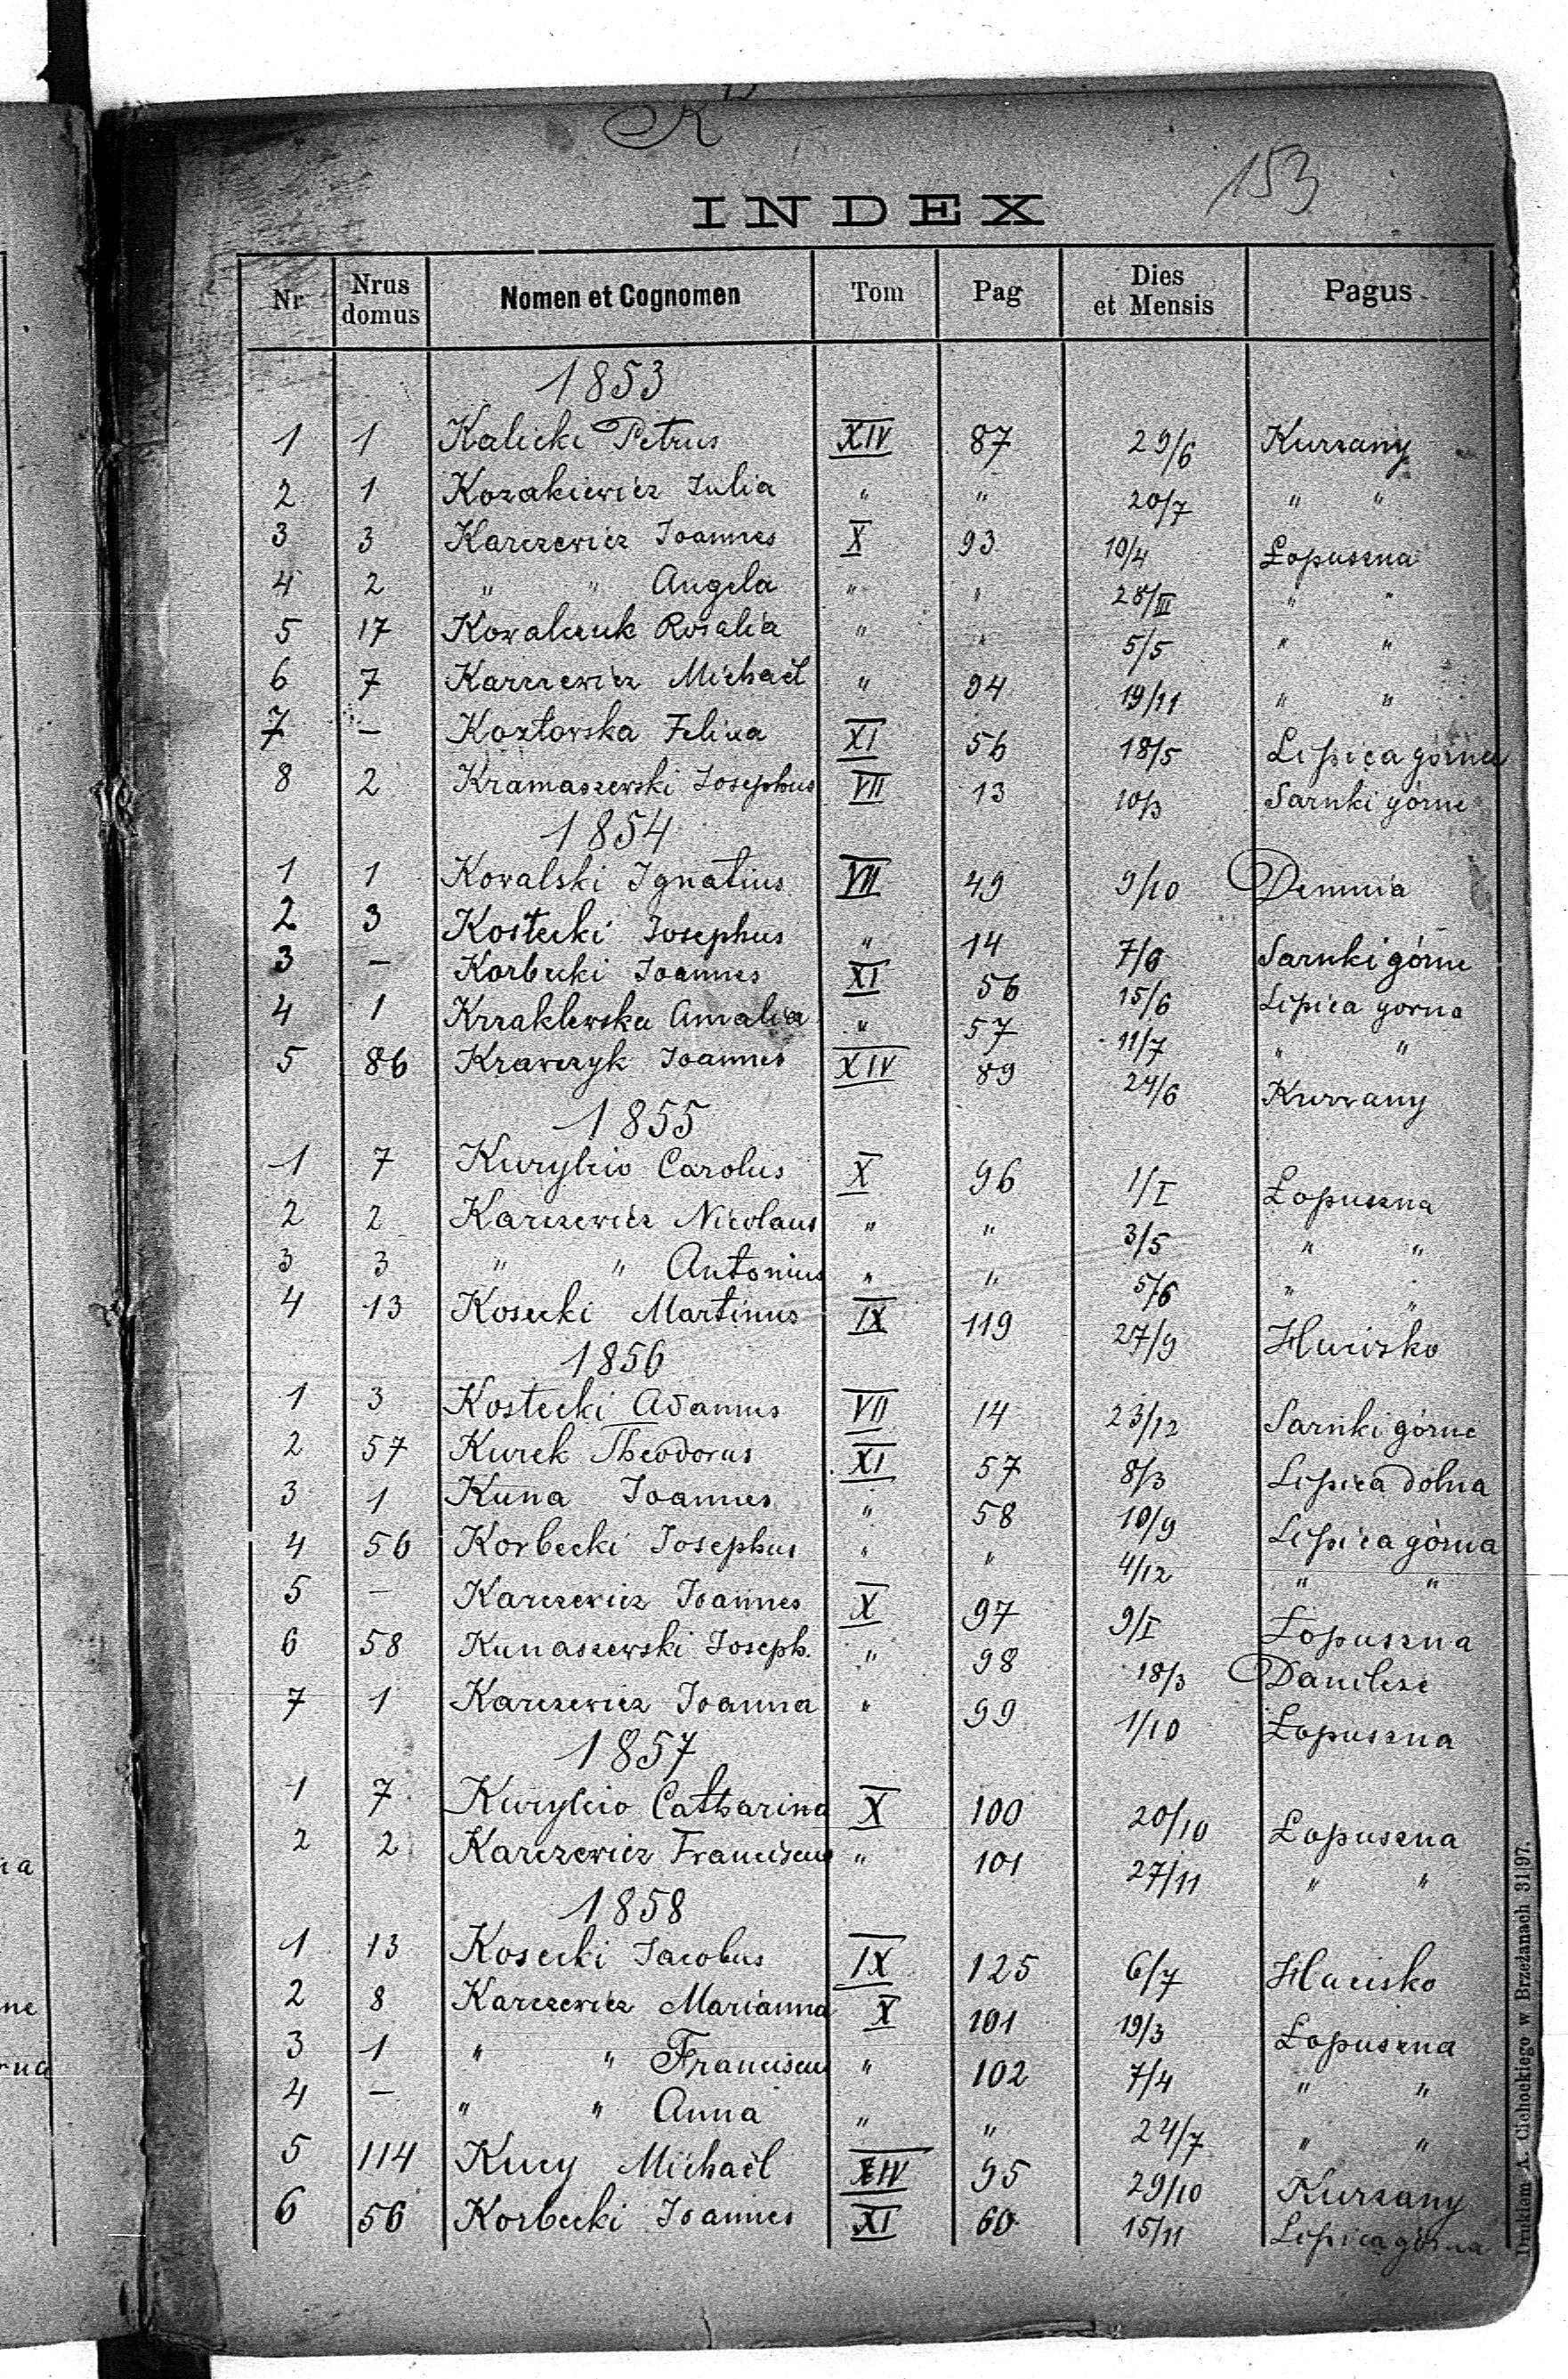 K
153
INDEX
Nr Nrus domus Nomen et Cognomen Tom Pag Dies et Mensis Pagus
1853
1 1 Kalicki Petrus XIV 87 29/6 Kurzany
2 1 Kozakiewicz Julia " " 20/7 " "
3 3 Karczewicz Joannes X 93 10/4 Łopuszna
4 2 " " Angela " " 28/III " "
5 17 Kowalczuk Rosalia " " 5/5 " "
6 7 Karczewicz Michaël " 94 19/11 " "
7 — Kozłowska Felixa XI 56 18/5 Lipica górna
8 2 Kramaszewski Josephus VII 13 10/3 Sarnki górne
1854
1 1 Kowalski Ignatius VII 49 9/10 Demnia
2 3 Kostecki Josephus " 14 7/6 Sarnki górne
3 — Korbecki Joannes XI 56 15/6 Lipica gorna
4 1 Krzaklewska Amalia " 57 11/7 " "
5 86 Krawczyk Joannes XIV 89 24/6 Kurzany
1855
1 7 Kuryłcio Carolus X 96 1/I Łopuszna
2 2 Karczewicz Nicolaus " " 3/5 " "
3 3 " " Antonius " " 5/6 " "
4 13 Kosecki Martinus IX 119 27/9 Hucisko
1856
1 3 Kostecki Adamus VII 14 23/12 Sarnki górne
2 57 Kurek Theodorus XI 57 8/3 Lipica dolna
3 1 Kuna Joannes " 58 10/9 Lipica górna
4 56 Korbecki Josephus " " 4/12 " "
5 — Karczewicz Joannes X 97 9/I Łopuszna
6 58 Kunaszewski Joseph. " 98 18/3 Danilcze
7 1 Karczewicz Joanna " 99 1/10 Łopuszna
1857
1 7 Kuryłcio Catharina X 100 20/10 Łopuszna
2 2 Karczewicz Franciscus " 101 27/11 " "
1858
1 13 Kosecki Jacobus IX 125 6/7 Hucisko
2 8 Karczewicz Marianna X 101 19/3 Łopuszna
3 1 " " Franciscus " 102 7/4 " "
4 — " " Anna " " 24/7 " "
5 114 Kucy Michaël XIV 95 29/10 Kurzany
6 56 Korbecki Joannes XI 60 15/11 Lipica górna
Drukiem A. Cichockiego w Brzeżanach 31|97.